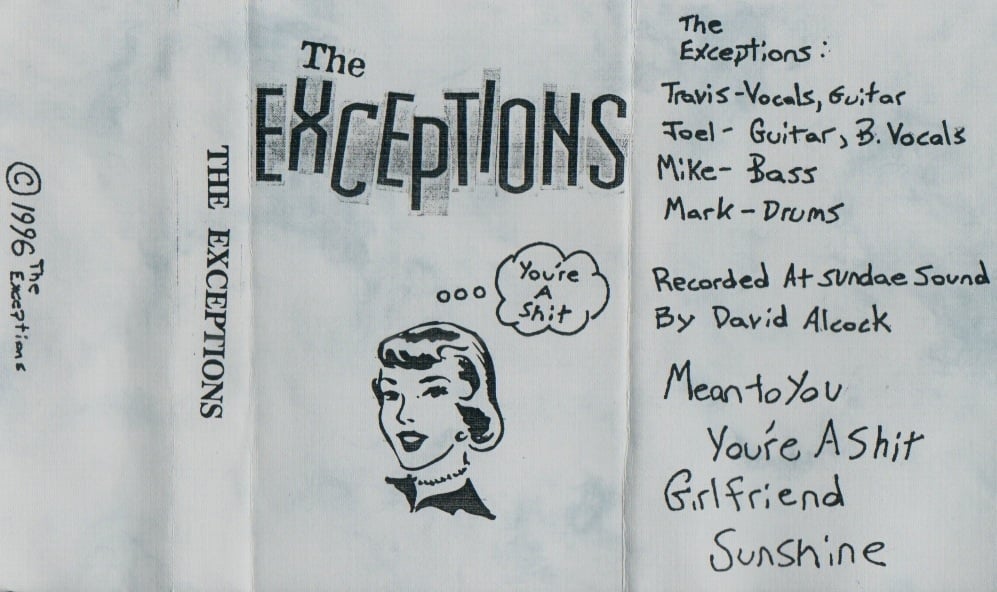 © 1996 The
Exceptions
THE EXCEPTIONS
The
EXCEPTIONS
You're
A
Shit
The
Exceptions:
Travis-Vocals, Guitar
Joel- Guitar, B. Vocals
Mike- Bass
Mark-Drums
Recorded At Sundae Sound
By David Alcock
Mean to You
You're A Shit
Girlfriend
Sunshine